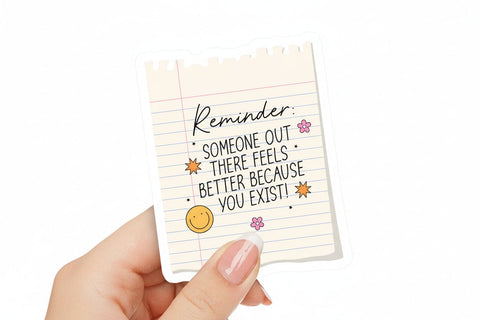 Reminder:
SOMEONE OUT
THERE FEELS
BETTER BECAUSE
YOU EXIST!